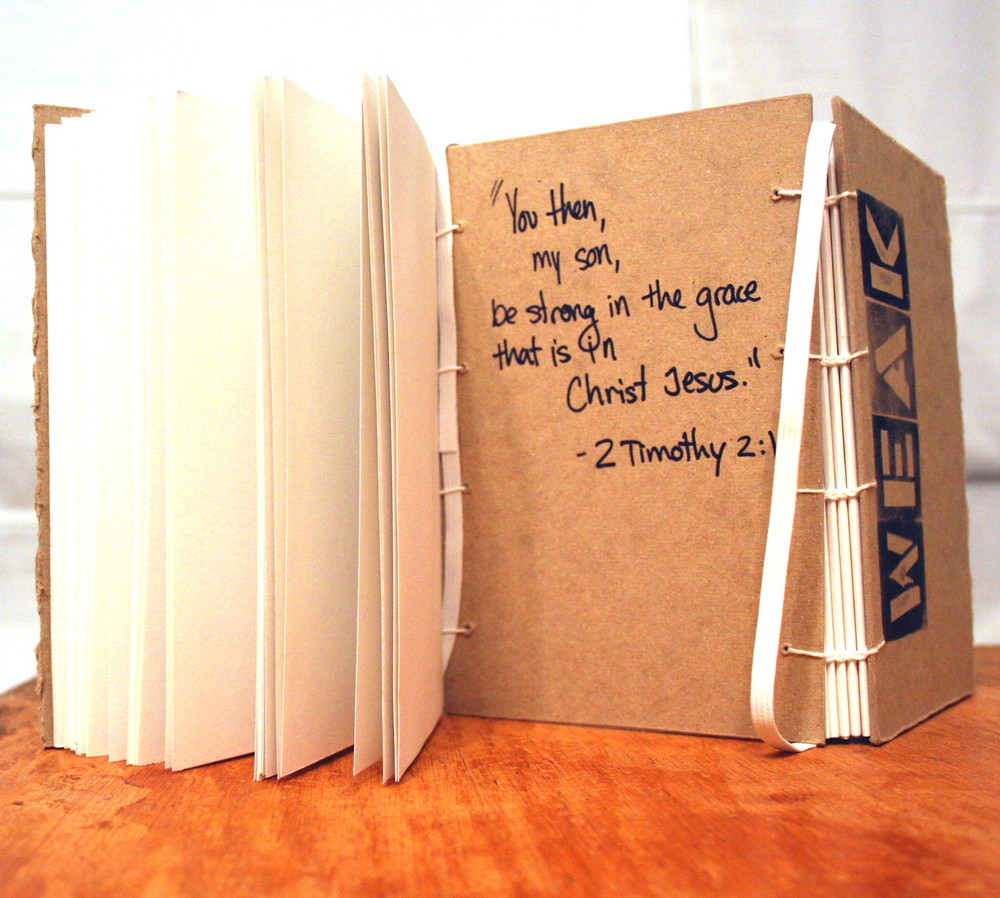 "You then,
my son,
be strong in the grace
that is in
Christ Jesus."
- 2 Timothy 2:1
WEAK